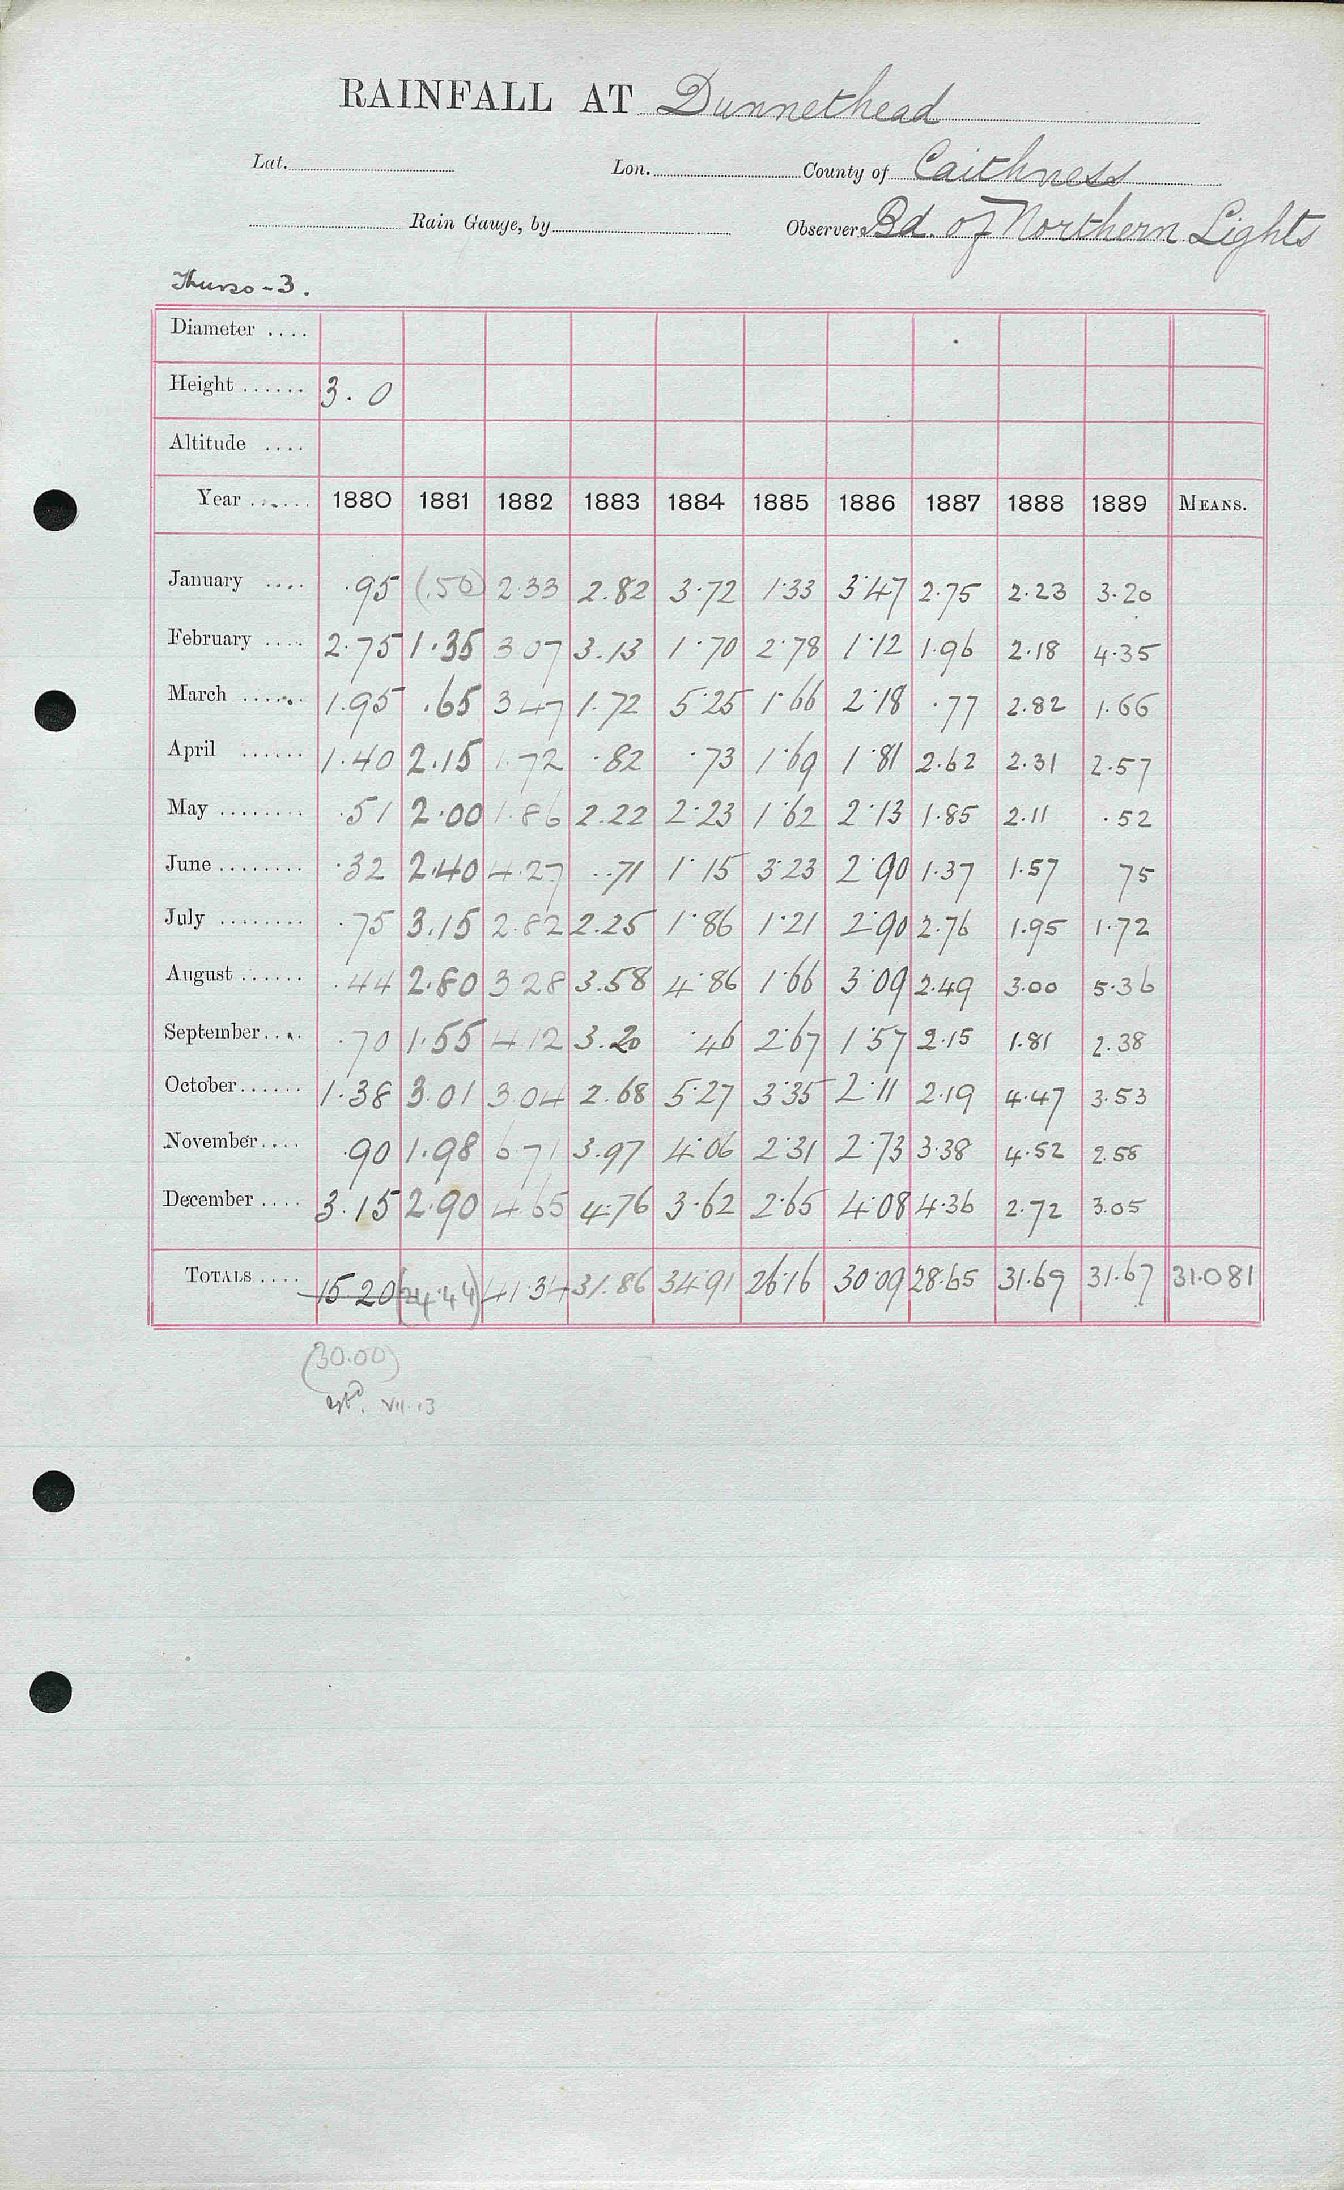 RAINFALL AT Dunnethead
Lat. Lon. County of Caithness
Rain Gauge, by Observer Bd. of Northern Lights
Thurso - 3.
Diameter ....
Height ...... 3.0
Altitude ....
Year ...... 1880 1881 1882 1883 1884 1885 1886 1887 1888 1889 MEANS.
January .... .95 (.50) 2.33 2.82 3.72 1.33 3.47 2.75 2.23 3.20
February .... 2.75 1.35 3.07 3.13 1.70 2.78 1.12 1.96 2.18 4.35
March ...... 1.95 .65 3.47 1.72 5.25 1.66 2.18 .77 2.82 1.66
April ...... 1.40 2.15 1.72 .82 .73 1.69 1.81 2.62 2.31 2.57
May ........ .51 2.00 1.86 2.22 2.23 1.62 2.13 1.85 2.11 .52
June ........ .32 2.40 4.27 .71 1.15 3.23 2.90 1.37 1.57 75
July ........ .75 3.15 2.82 2.25 1.86 1.21 2.90 2.76 1.95 1.72
August ...... .44 2.80 3.28 3.58 4.86 1.66 3.09 2.49 3.00 5.36
September.... .70 1.55 4.12 3.20 .46 2.67 1.57 2.15 1.81 2.38
October...... 1.38 3.01 3.04 2.68 5.27 3.35 2.11 2.19 4.47 3.53
November.... .90 1.98 6.71 3.97 4.06 2.31 2.73 3.38 4.52 2.58
December .... 3.15 2.90 4.65 4.76 3.62 2.65 4.08 4.36 2.72 3.05
TOTALS .... 15.20 (24.44) 41.34 31.86 34.91 26.16 30.09 28.65 31.69 31.67 31.081
(30.00)
estd. VII.13